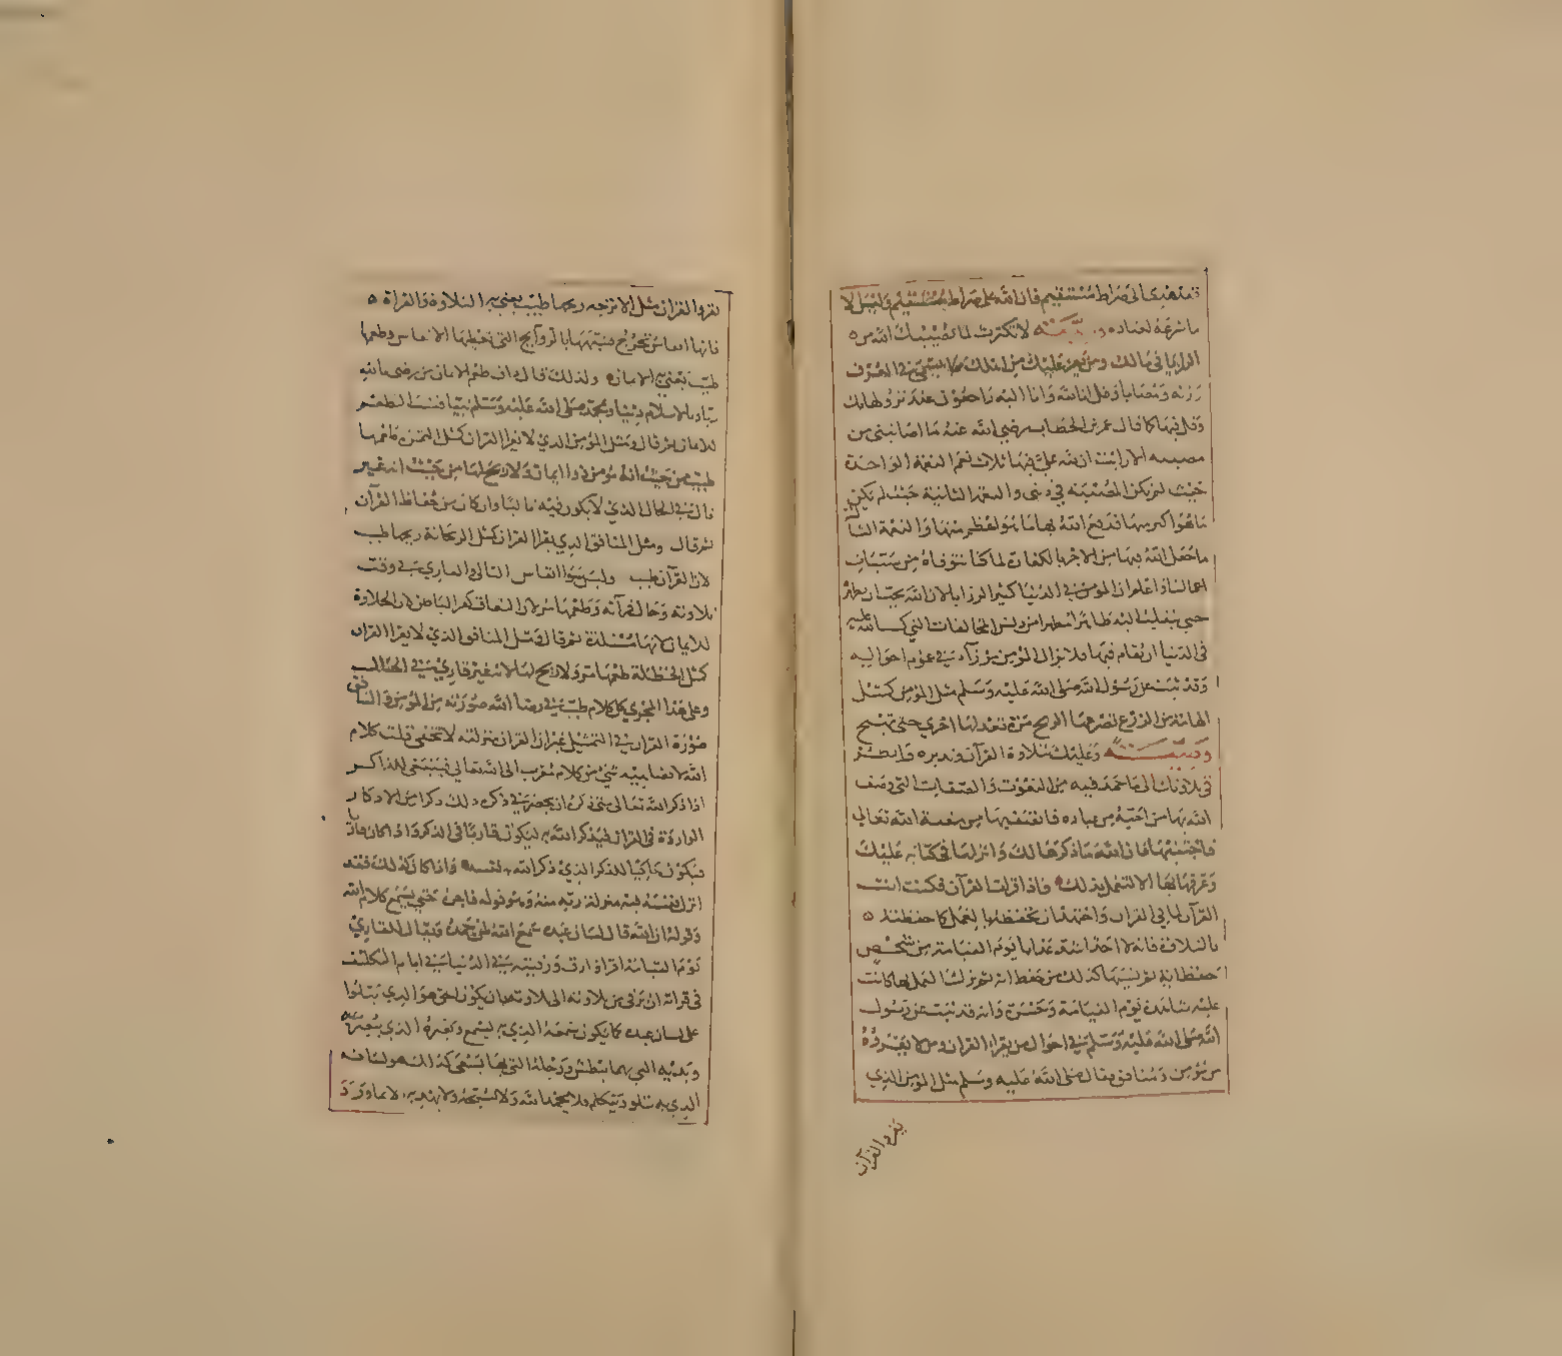 فتهدي الى صراط مستقيم فان الله على صراط مستقيم وليس الا
ما شرعه لعباده وصية لا تكترث لما يصيبك الله من
الرزايا في مالك ومن يعز عليك من اهلك مما يسمى في العرف
رزية ومصابا وقل انا لله وانا اليه راجعون عند نزولها بك
وقل فيها كما قال عمر بن الخطاب رضي الله عنه ما اصابتني من
مصيبة الا رايت ان لله علي فيها ثلاث نعم النعمة الواحدة
حيث لم تكن المصيبة في ديني والنعمة الثانية حيث لم يكن
ما هو اكبر منها فدفع الله بها ما هو اعظم منها والنعمة الثا
ما جعل الله فيها من الاجر بالكفارة لما كنا نتوقاه من سيئات
اعمالنا واعلم ان المومن في الدنيا كثير الرزايا لان الله يحب ان يطهره
حتى ينقلب اليه طاهرا مطهرا من دنس المخالفات التي كتب الله عليه
في الدنيا ان يقام فيها فلا يزال المومن مرزآ في عموم احواله
وقد ثبت عن رسول الله صلى الله عليه وسلم مثل المومن كمثل
الخامة من الزرع تصرعها الريح مرة وتعدلها اخرى حتى تهيج
وصية وعليك بتلاوة القرآن وتدبره وانظر
في تلاوتك الى ما حمد فيه من النعوت والصفات التي وصف
الله بها من احبه من عباده فاتصف بها من صفة الله تعالى
فاجتنبها فان الله ما ذكرها لك وانزلها في كتابه عليك
وعرفك بها الا لتعمل بذلك فاذا قرات القرآن فكنت انت
القرآن لما في القرآن واجتهد ان تحفظه بالعمل كما حفظته
بالتلاوة فانه لا احد اشد عذابا يوم القيامة من شخص
حفظ اية ثم نسيها كذلك من حفظ اية ثم ترك العمل بها كانت
عليه شاهدة يوم القيامة وحسرة وانه قد ثبت عن رسول
الله صلى الله عليه وسلم في احوال من يقرا القرآن ومن لا يقرؤه
من مومن ومنافق فقال صلى الله عليه وسلم مثل المومن الذي
يقرو القرآن
يقرو القرآن مثل الاترجة ريحها طيب يعني به التلاوة والقراة
فانها انفاس تخرج فشبهها بالروايح التي تعطيها الانفاس وطعمها
طيب يعني به الايمان ولذلك قال ذاق طعم الايمان من رضي بالله
ربا وبالاسلام دينا وبمحمد صلى الله عليه وسلم نبيا فنسب الطعم
للايمان ثم قال ومثل المومن الذي لا يقرا القرآن كمثل التمرة طعمها
طيب من حيث انه مومن ذو ايمان ولا ريح لها من حيث انه غير
تال في الحال الذي لا يكون فيه تاليا وان كان من حفاظ القرآن
ثم قال ومثل المنافق الذي يقرا القرآن كمثل الريحانة ريحها طيب
لان القرآن طيب وليس سوى انفاس التالي والقاري في وقت
تلاوته وحال قرآته وطعمها مر لان النفاق كفر الباطن لان الحلاوة
للايمان لانها مستلذة ثم قال ومثل المنافق الذي لا يقرا القرآن
كمثل الحنظلة طعمها مر ولا ريح لها لانه غير قاري في الحال
وعلى هذا المجرى كل كلام طيب فيه رضا الله صورته من المومن والمنافق
صورة القرآن في التمثيل غير ان القرآن منزلته لا تخفى فان كلام
الله لا يضاهيه شيء من كلام مقرب الى الله تعالى فينبغي للذاكر
اذا ذكر الله تعالى متى ذكره ان يحضر في ذكره ذلك ذكرا من الاذكار
الواردة في القرآن فيذكر الله به ليكون قاريا في الذكر واذا كان قاريا
فيكون حاكيا للذكر الذي ذكر الله به نفسه واذا كان كذلك فقد
انزل نفسه فيه منزلة ربه منه وهو قوله فاجره حتى يسمع كلام الله
وقوله ان الله قال على لسان عبده سمع الله لمن حمده ويقال للقاري
يوم القيامة اقرا وارق ورقيه في الدنيا في ايام التكليف
في قراته ان يرقى من تلاوته الى تلاوته بان يكون الحق هو الذي يتلو
على لسان عبده كما يكون سمعه الذي به يسمع وبصره الذي يبصر به
ويديه التي بها يبطش ورجله التي بها يسعى كذلك هو لسانه
الذي به يتلو ويتكلم فلا يحمد الله ولا يسبحه ولا يهلله الا بما ورد